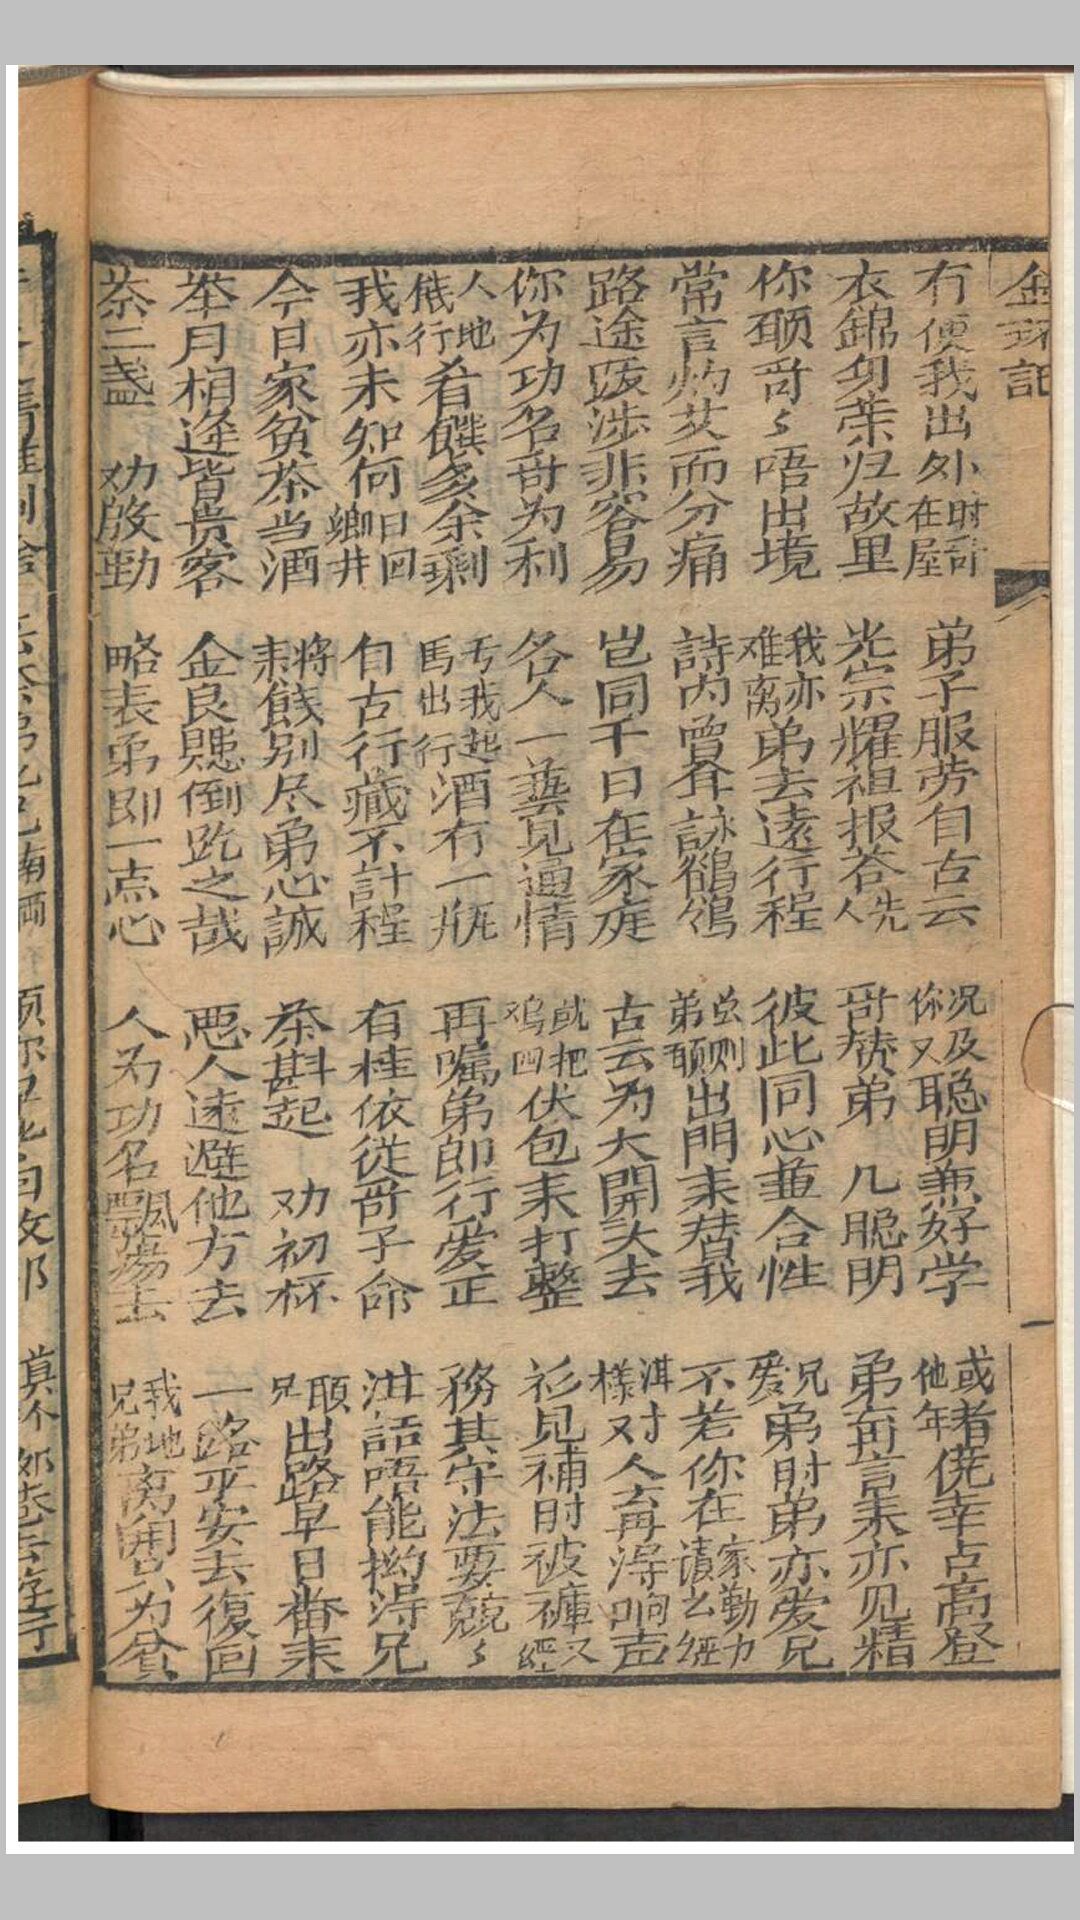 金 記
冇便我出外时哥在屋 弟子服劳自古云 况及你又聪明兼好学 或者他年侥幸占高登
衣錦匀荣归故里 光宗耀祖报答先人 哥赞弟 几聪明 弟再言来亦见精
你頋哥々唔出境 我亦难离弟去遠行程 彼此同心兼合性 兄爱弟时弟亦爱兄
常言灼艾而分痛 詩内曾 詠鶺鴒 总则弟頋出門来替我 不若你在家勤力讀 經
路途跋涉非容易 岂同千日在家庭 古云为大開头去 樣对人再淂响声
你为功名哥为利 名人一藝見通情 就把 伏包来打整 衫見補时被褲又經
人地 行肴饌多余剩 丐我起馬出行酒冇一瓶 再嘱弟即行爱正 務其守法要兢々
我亦未知何日回鄉井 自古行藏不計程 有桂依從哥子命 泔話唔能拗淂兄
今日家贫茶当酒 将来餞别尽弟心誠 茶斟起 劝初杯 頋兄出路早日番来
举月相逢皆贵客 金良 倒 之哉 惡人速避他方去 一路平安去復回
茶三盏 劝殷勤 略表弟即一点心 人为功名飄揚去 我地兄弟离開只为貧